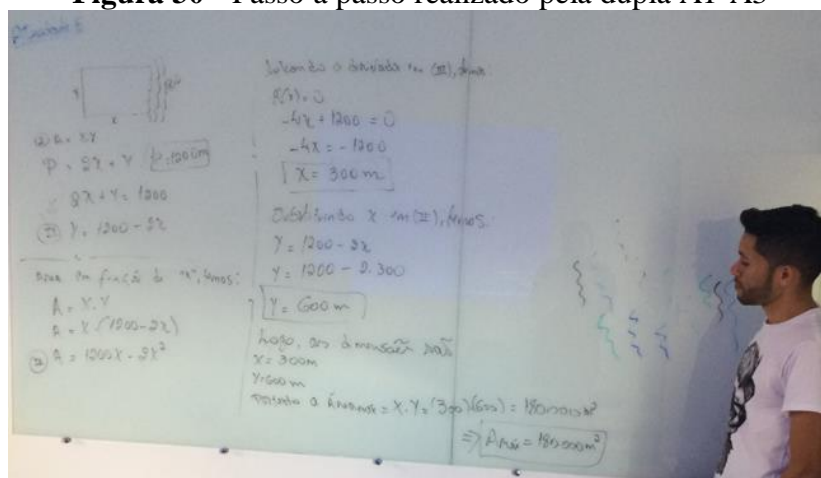 Figura 30 - Passo a passo realizado pela dupla A1-A3
Y
X
Rio
A = X.Y
P = 2X + Y P = 1200m
2X + Y = 1200
(II) Y = 1200 - 2X
em função de "x", temos:
A = X.Y
A = X.(1200-2X)
(III) A = 1200X - 2X²
a derivada em (III), temos:
-4X + 1200 = 0
-4X = -1200
X = 300 m
Substituindo X em (II), temos:
Y = 1200 - 2X
Y = 1200 - 2.300
Y = 600 m
Logo, as dimensões são
X = 300m
Y = 600m
Portanto a = X.Y = (300)(600) = 180000m²
=> Amáx = 180000m²